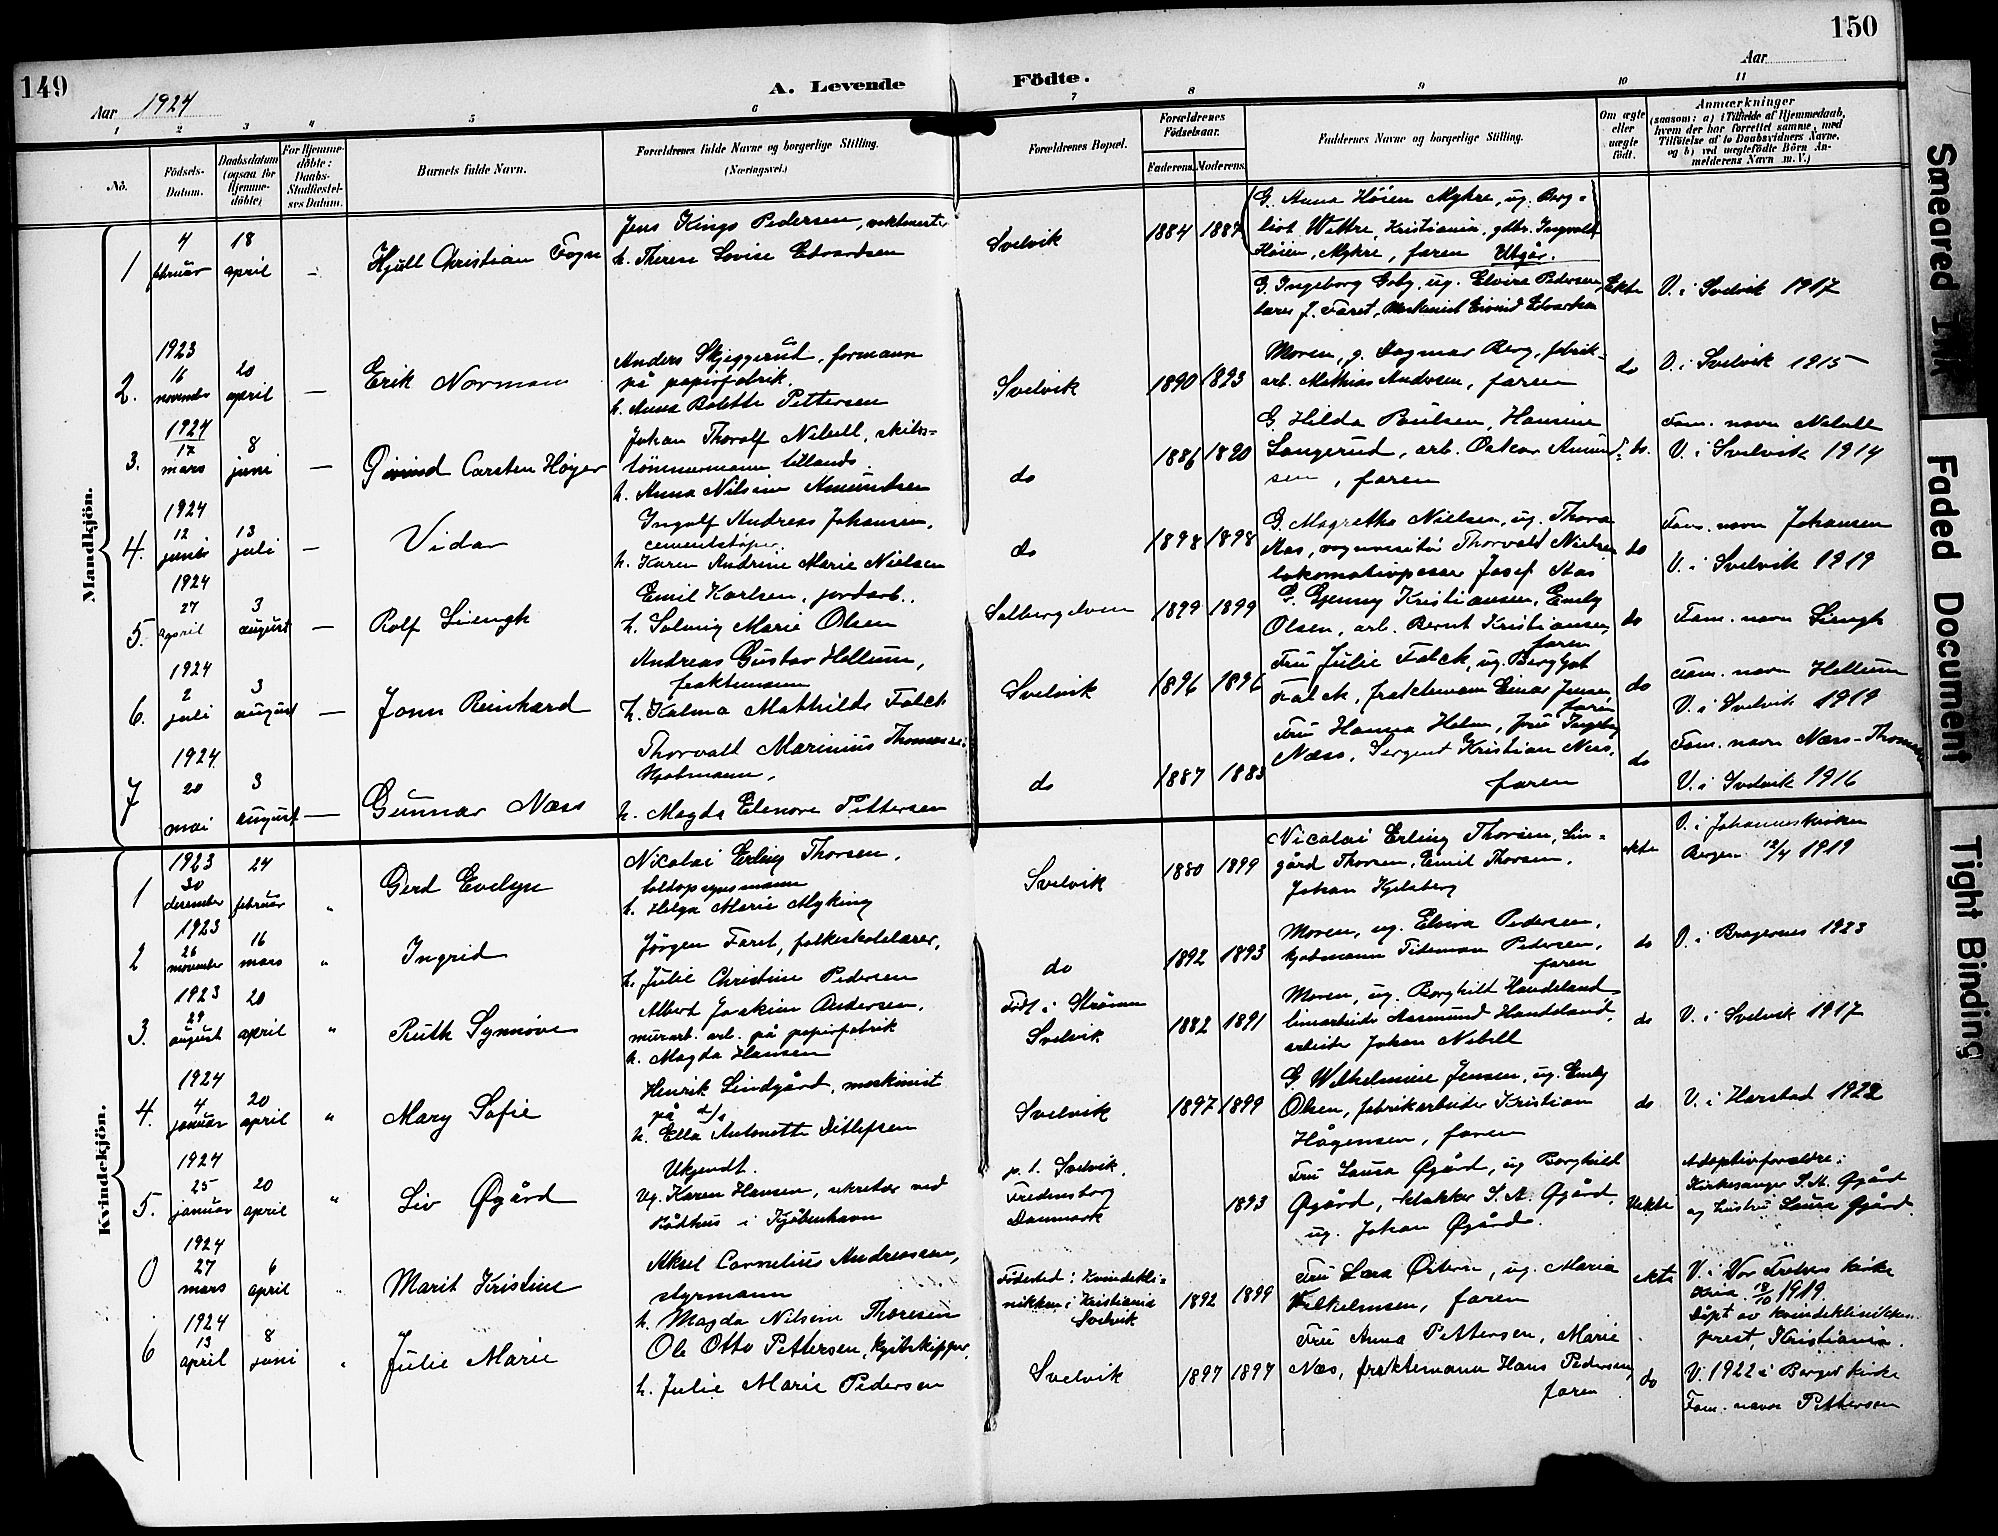 149
150
Aar 1924
A. Levende Födte.
Aar
1 2 3 4 5 6 7 8 9 10 11
No.
Födsels-Datum.
Daabsdatum (ogsaa for Hjemmedöbte)
For Hjemmedöbte: Daabs-Stadfæstelses Datum.
Barnets fulde Navn.
Forældrenes fulde Navne og borgerlige Stilling. (Næringsvei.)
Forældrenes Bopæl.
Forældrenes Födselsaar.
Faderens. Moderens.
Faddernes Navne og borgerlige Stilling.
Om ægte eller uægte födt.
Anmærkninger (saasom: a) i Tilfælde af Hjemmedaab, hvem der har forrettet samme, med Tilföielse af to Daabsvidners Navne, og b) ved uægtefödte Börn Anmelderens Navn m. V.)
Mandkjön.
1 4 februar 18 april - Hjell Christian Fogn
Jens Kings Pedersen,
h. Therese Lovise Edvardsen
Svelvik 1884 1887
G. Anna Høien Myhre, ug. Berg-
liot Wettre, Kristiania, gbr. Ingvald
Høien, Myhre, faren Utgår.
G. Ingeborg Goby, ug. Elvira Pedersen,
lærer J. Faret, Eivind Edvardsen
Ekte V. i Svelvik 1917
2. 1923 16 novemb 20 april — Erik Norman
Anders Skjeggerud, formann
på papirfabrik.
h. Anna Bolette Pettersen
Svelvik 1890 1893
Moren, g. Dagmar Berg, fabrik-
arb. Mathias Andersen, faren
do V. i Svelvik 1915
3. 1924 17 mars 8 juni — Øivind Carsten Høyer
Johan Thoralf Nebell, skibs-
tømmermann
h. Anna Nilsine Amundsen
do 1886 1890
G. Hilda Paulsen, Hansine
Langerud, arb. Oskar Amund-
sen, faren
do. Fam. navn Nebell
V. i Svelvik 1914
4. 1924 12 juni 13 juli — Vidar
Ingolf Andreas Johansen,
cementstøper
h. Karen Andrine Marie Nielsen
do 1898 1898
G. Magretha Nielsen, ug. Thora
Aas, Thorvald Nielsen
lokomotivpusser Josef Aas
do Fam. navn Johansen
V. i Svelvik 1919
5. 1924 27 april 3 august — Rolf Liengh
Emil Karlsen, jordarb.
h. Solveig Marie Olsen
Solbergelven 1899 1899
G. Gjenny Kristiansen, Emly
Olsen, arb. Bernt Kristiansen,
faren
do Fam. navn Liengh
6. 1924 2 juli 3 august — Jonn Reinhard
Andreas Gustav Hellum,
fraktemann
h. Kalma Mathilde Falck
Svelvik 1896 1896
Fru Julie Falck, ug. Bergljot
Falck, fraktemann Einar Jensen,
faren
do Fam. navn Hellum
V. i Svelvik 1919
7 1924. 20 mai 3 august — Gunnar Næss
Thorvald Marinius Thomassen
Kjøbmann,
h. Magda Elenore Pettersen
do 1887 1883
Fru Hanna Holm, fru Ingeborg
Næss, Sergent Kristian Næss,
faren
do Fam. navn Næss-Thomassen
V. i Svelvik 1916
Kvindekjön.
1 1923 30 desember 24 februar " Gerd Evelyn
Nicolai Erling Thorsen,
toldopsynsmann
h. Helga Marie Myking
Svelvik 1880 1899
Nicolai Erling Thorsen, Lin-
gård Thorsen, Emil Thorsen,
Johan Kjelsberg
ekte V. i Johanneskirken
Bergen 12/4 1919
2 1923 26 november 16 mars " Ingrid
Jørgen Faret, folkeskolelærer,
h. Julie Christine Pedersen
do 1892 1893
Moren, ug. Elvira Pedersen,
kjøbmann Tideman Pedersen,
faren
do V. i Bragernes 1923
3. 1923 29 august 20 april " Ruth Synnøve
Albert Joakim Andersen,
murarb. arb. på papirfabrik
h. Magda Hansen
Født i Strømm
Svelvik 1882 1891
Moren, ug. Borghild Handeland
Aasmund Handeland,
arbeider Johan Nebell
do V. i Svelvik 1917
4. 1924 4 januar 20 april " Mary Sofie
Henrik Lindgård, maskinist
på d/s
h. Ella Antonette Ditlefsen
Svelvik 1897 1899
G. Wilhelmine Jensen, ug. Emly
Olsen, fabrikarbeider Kristian
Hågensen, faren
do V. i Harstad 1922
5. 1924 25 januar 20 april " Liv Øgård
Ukjendt.
Ug. Karen Hansen, sekretær ved
Rådhus i Kjøbenhavn
p. t. Svelvik,
Fredensborg
Danmark 1893
Fru Laura Øgård, ug Borghild
Øgård, klokker S. A. Øgård,
ug. Johan Øgård.
Uekte Adoptivforældre:
Kirkesanger S. A. Øgård
og hustru Laura Øgård.
0 1924 27 mars 6 april Marit Kristine
Aksel Cornelius Andreassen,
styrmann
h. Magda Nilsine Thoresen
Fødested: Kvindekli-
nikken i Kristiania
Svelvik 1892 1899
Fru Lara Østern, ug. Maria
Vilhelmsen, faren
ekte V. i Vor Frelsers kirke
Kria. 12/10 1919.
Døpt av kvindeklinikkens
prest, Kristiania.
6 1924 13 april 8 juni Julie Marie
Ole Otto Pettersen, kystskipper,
h. Julie Marie Pedersen
Svelvik 1897 1897
Fru Anna Pettersen, Marie
Næs, fraktemann Hans Pedersen,
faren
do V. 1922 i Berger kirke
Fam. navn Pettersen
Smeared Ink
Faded Document
Tight Binding